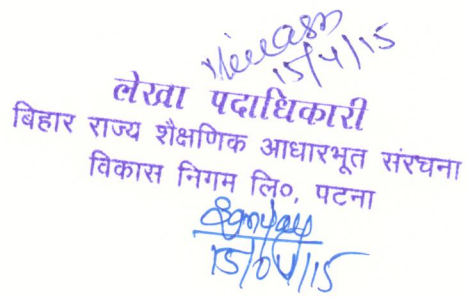 15/4/15
लेखा पदाधिकारी
बिहार राज्य शैक्षणिक आधारभूत संरचना
विकास निगम लि०, पटना
15/04/15